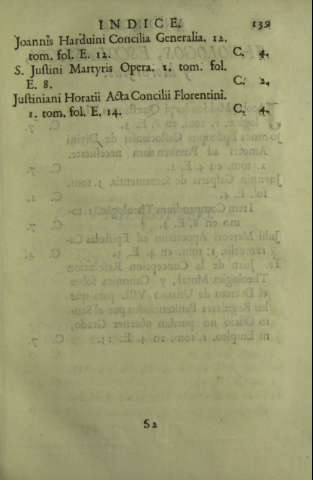 INDICE. 139
Joannis Harduini Concilia Generalia. 12.
tom. fol. E. 12. C. 4.
S. Justini Martyris Opera. 1. tom. fol.
E. 8. C. 2.
Justiniani Horatii Acta Concilii Florentini.
1. tom. fol. E. 14. C. 4.
S2